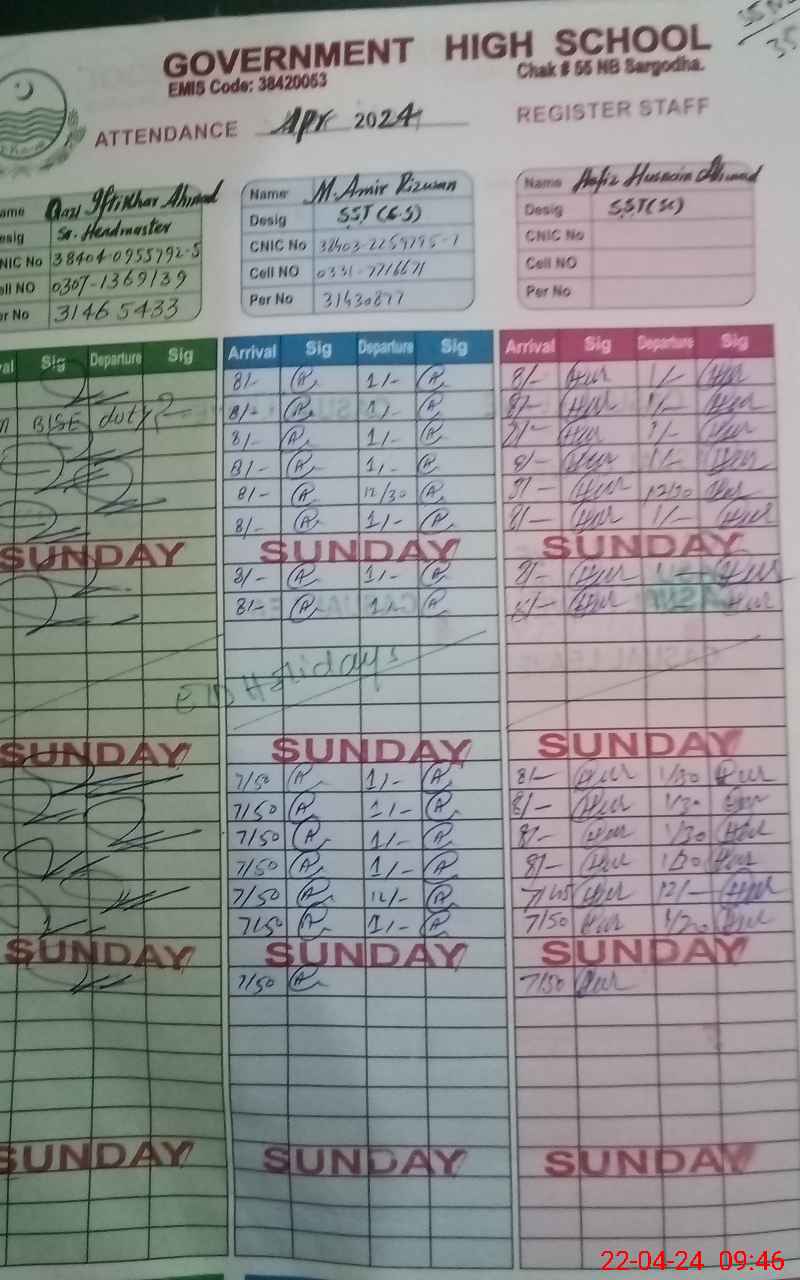 GOVERNMENT HIGH SCHOOL
EMIS Code: 38420053 Chak # 55 NB Sargodha.
ATTENDANCE Apr 2024 REGISTER STAFF
ame Qazi Iftikhar Ahmad
esig Sr. Headmaster
NIC No 38404-0955792-5
ell NO 0307-1369139
er No 31465433
Name M. Amir Rizwan
Desig SST (C.S)
CNIC No
Cell NO 0331-7716671
Per No 31430877
Name Hafiz Husnain Ahmad
Desig SST(Sc)
CNIC No
Cell NO
Per No
al Sig Departure Sig Arrival Sig Departure Sig Arrival Sig Departure Sig
8/- 1/- 8/- 1/-
n BISE duty 8/- 1/- 8/- 1/-
8/- 1/- 8/- 1/-
8/- 1/- 8/- 1/-
8/- 12/30 8/- 12/30
8/- 1/- 8/- 1/-
SUNDAY SUNDAY SUNDAY
8/- 1/- 8/-
8/- 1/- 8/-
EID Holidays
SUNDAY SUNDAY SUNDAY
7/50 1/- 8/- 1/30
7/50 1/- 8/- 1/30
7/50 1/- 8/- 1/30
7/50 1/- 8/- 1/30
7/50 12/- 7/45 12/-
7/50 1/- 7/50
SUNDAY SUNDAY SUNDAY
7/50 7/50
SUNDAY SUNDAY SUNDAY
22-04-24 09:46